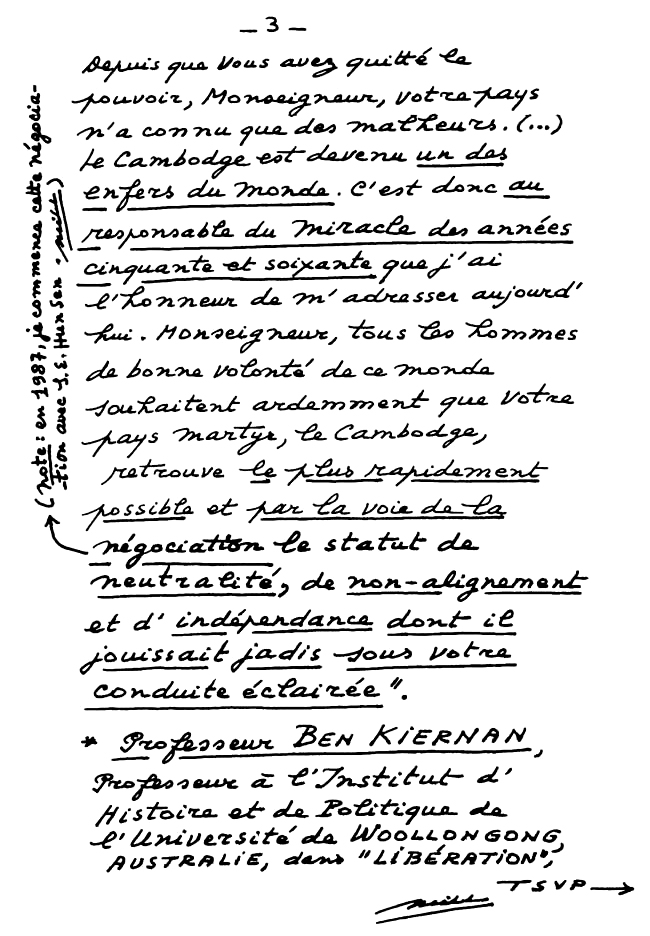 — 3 —
Depuis que Vous avez quitté le
pouvoir, Monseigneur, votre pays
n'a connu que des malheurs. (...)
Le Cambodge est devenu un des
enfers du monde. C'est donc au
responsable du miracle des années
cinquante et soixante que j'ai
l'honneur de m'adresser aujourd'
hui. Monseigneur, tous les hommes
de bonne volonté de ce monde
souhaitent ardemment que Votre
pays martyr, le Cambodge,
retrouve le plus rapidement
possible et par la voie de la
négociation le statut de
neutralité, de non-alignement
et d'indépendance dont il
jouissait jadis sous votre
conduite éclairée".
* Professeur BEN KIERNAN,
Professeur à l'Institut d'
Histoire et de Politique de
l'Université de WOOLLONGONG,
AUSTRALIE, dans "LIBÉRATION",
TSVP →
(note : en 1987, je commence cette négocia-
tion avec S.E. Hun Sen.)